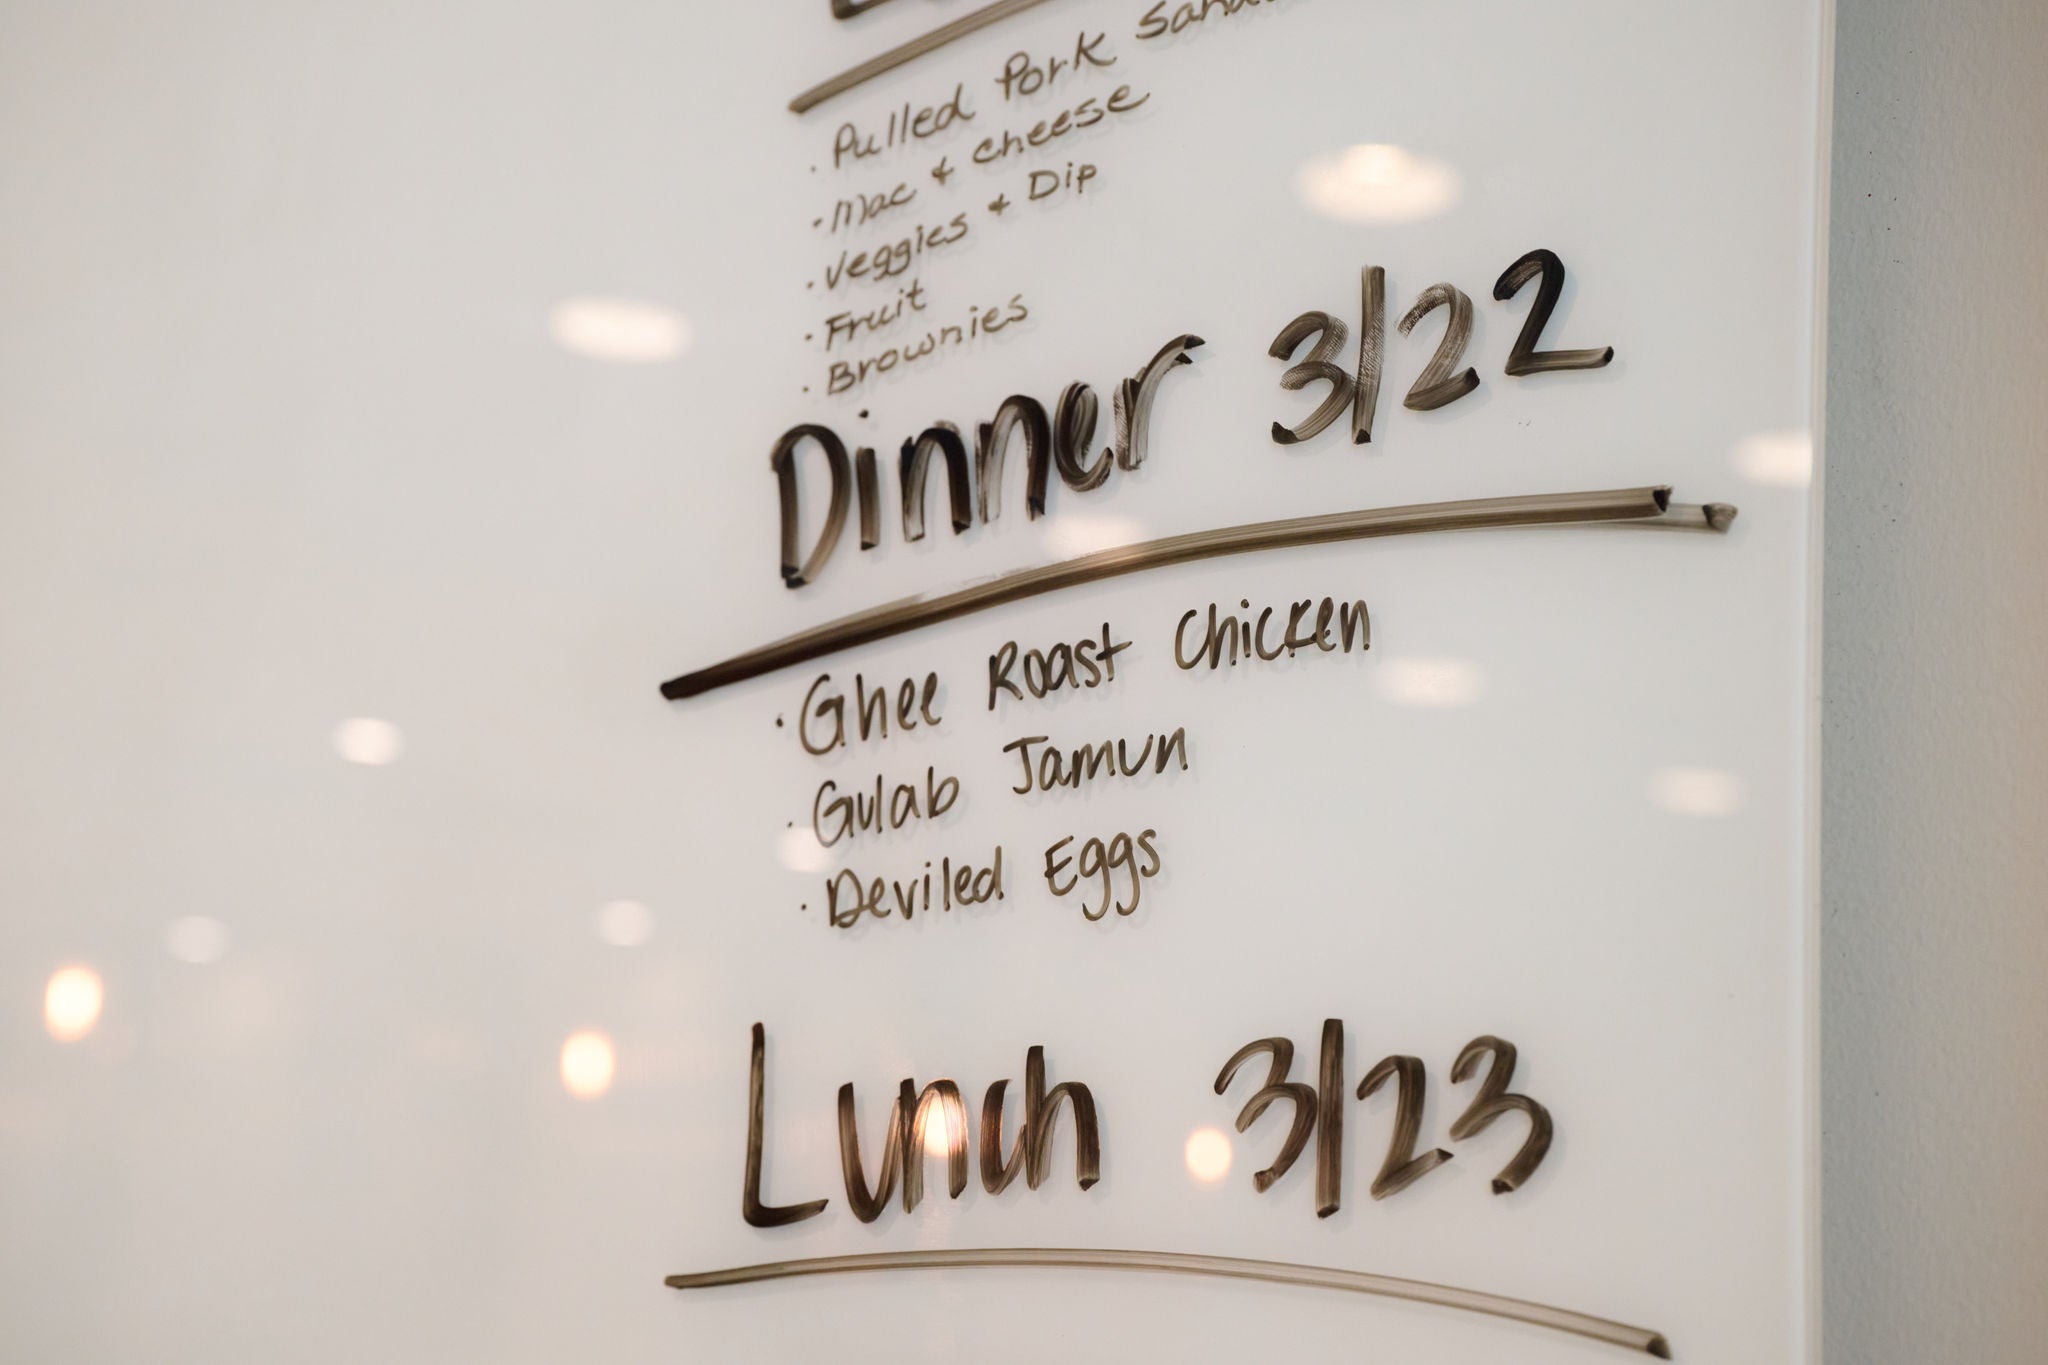 · Pulled Pork
· Mac & cheese
· Veggies & Dip
· Fruit
· Brownies
Dinner 3/22
· Ghee Roast Chicken
· Gulab Jamun
· Deviled Eggs
Lunch 3/23